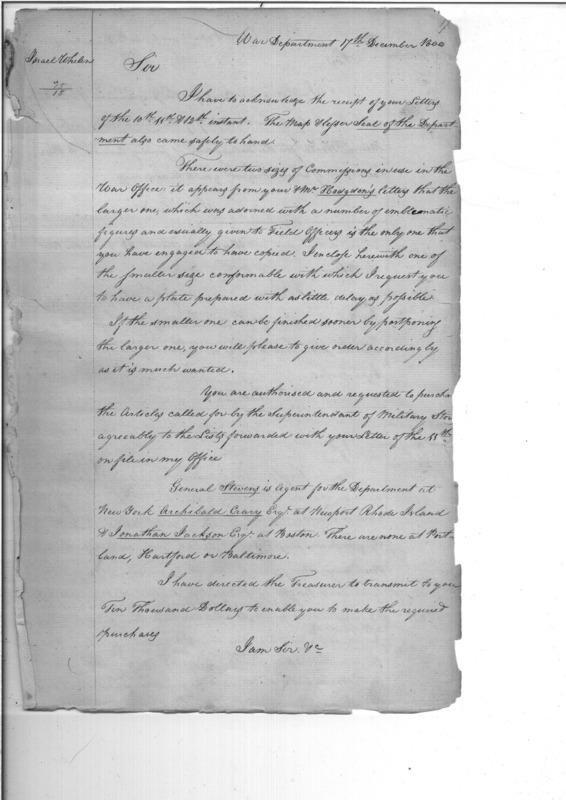 War Department 17th December 1800
Israel Whelen
Sir
I have to acknowledge the receipt of your Letters
of the 10th, 11th & 12th instant. The Map & Seal of the Depart-
ment also came safely to hand.
There were two sizes of Commissions in use in the
War Office it appears from your & Mr Hodgdon's letters that the
larger one, which was adorned with a number of emblematic
figures and usually given to Field Officers is the only one that
you have engaged to have copied. I enclose herewith one of
the smaller size conformable with which I request you
to have a plate prepared with as little delay as possible
If the smaller one can be finished sooner by postponing
the larger one, you will please to give order accordingly
as it is much wanted.
You are authorised and requested to purcha
the Articles called for by the Superintendant of Military Stor
agreeably to the Lists forwarded with your Letter of the 11th
on file in my Office
General Stevens is Agent for the Department at
New York Archibald Crary Esqr. at Newport Rhode Island
& Jonathan Jackson Esqr. at Boston. There are none at Port-
land, Hartford or Baltimore.
I have directed the Treasurer to transmit to you
Ten Thousand Dollars to enable you to make the required
purchases
I am Sir &c